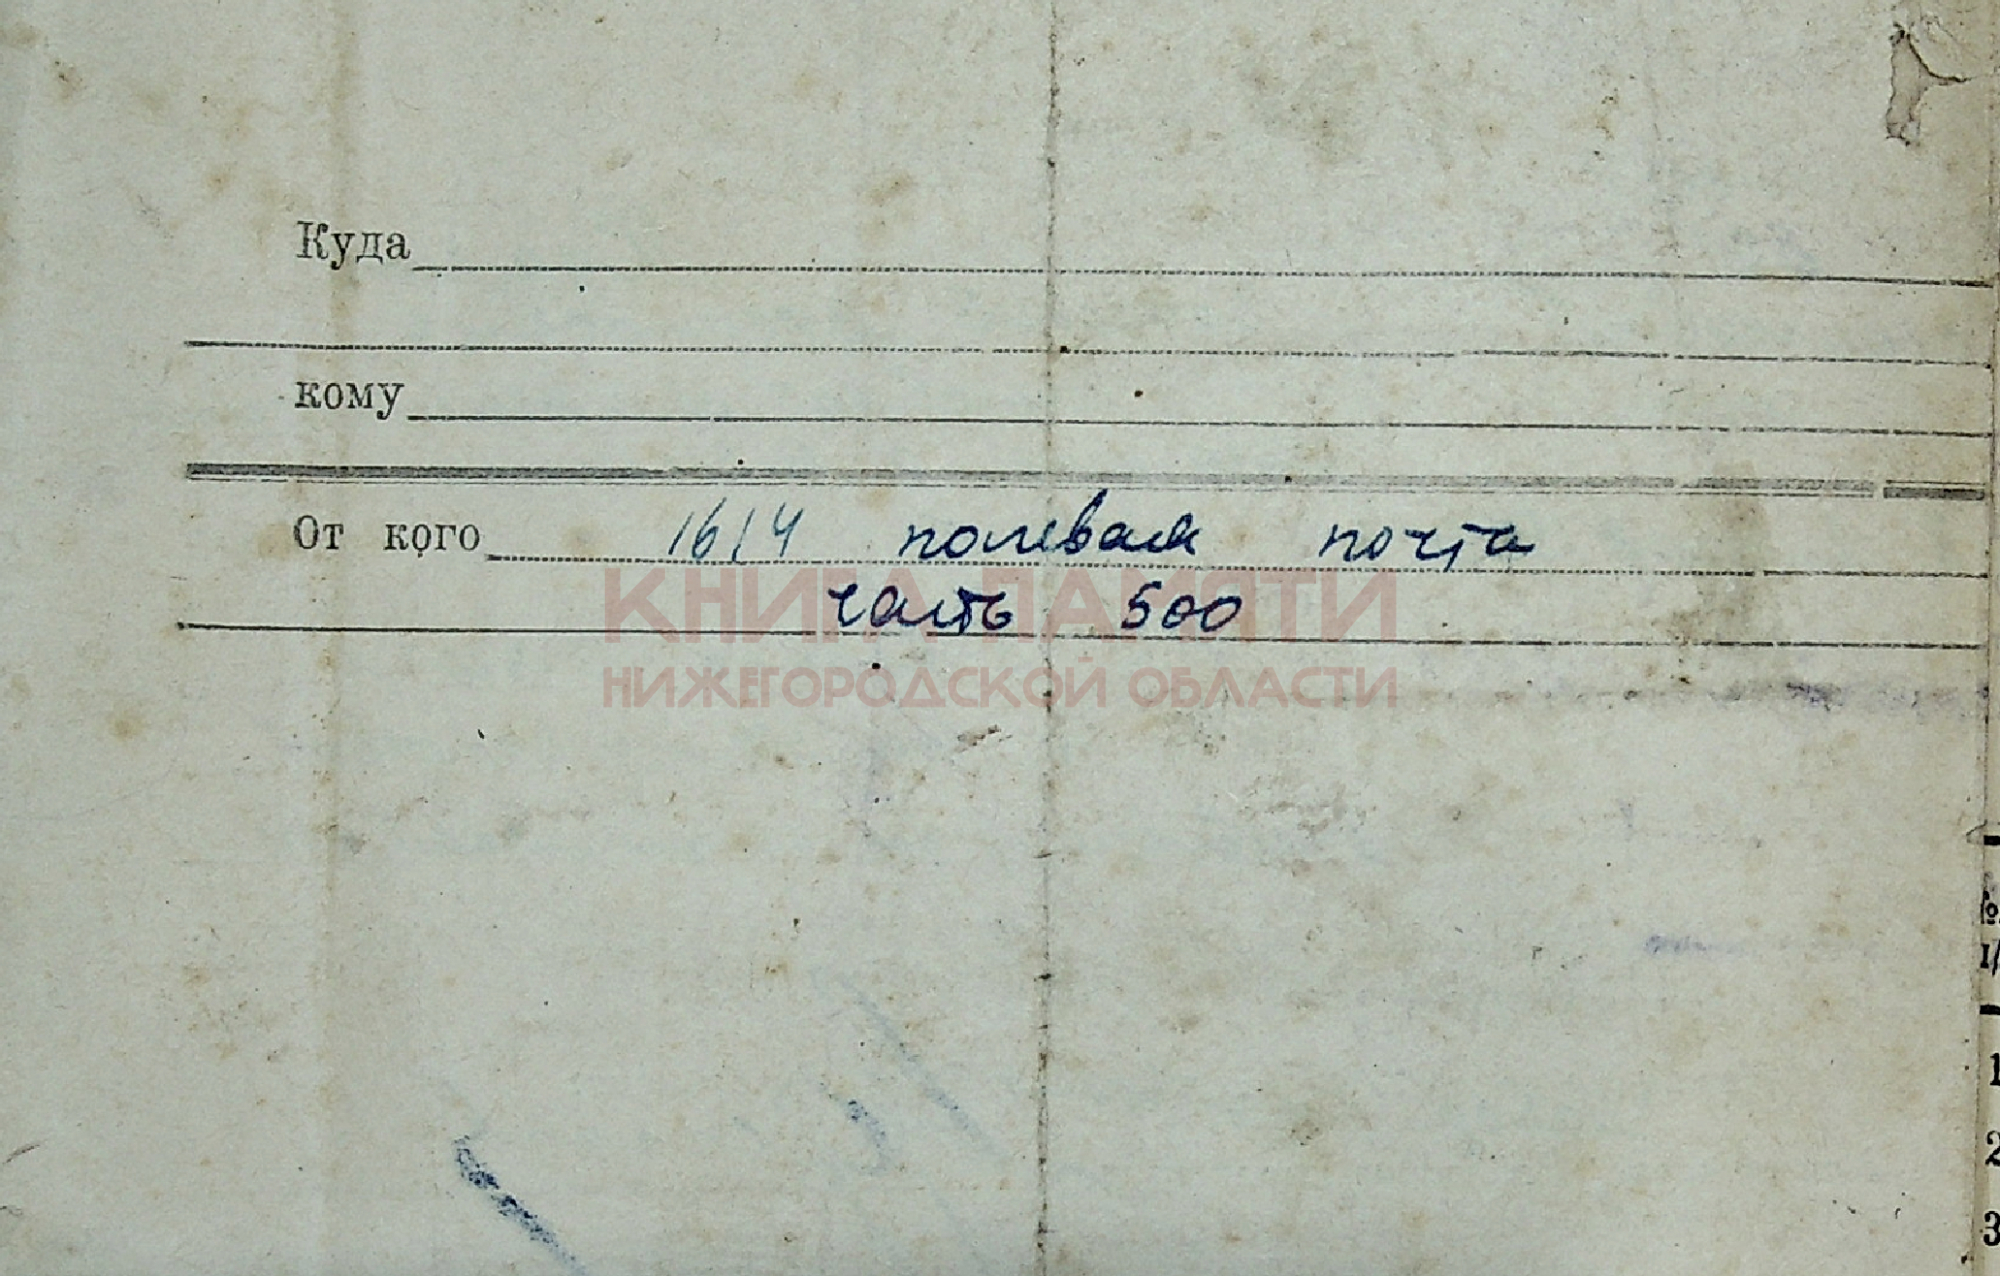 Куда
кому
От кого 1614 полевая почта
часть 500
КНИГА ПАМЯТИ
НИЖЕГОРОДСКОЙ ОБЛАСТИ
1
2
3